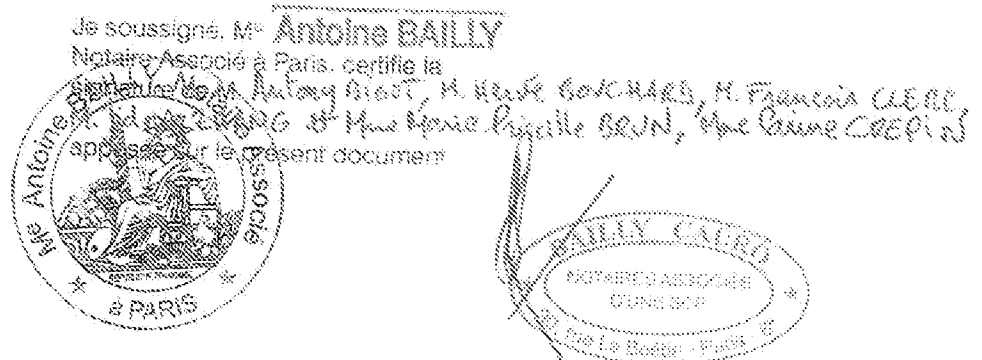 Je soussigné, Me Antoine BAILLY
Notaire Associé à Paris, certifie la
signature de M. Antony BIDET, M. Hervé BOUCHARD, M. François CLERC
CHANG et Mme Marie Priscille BRUN, Mme Carine CREPIN
apposée sur le présent document
Me Antoine BAILLY Notaire Associé
à PARIS
BAILLY CAURIS
NOTAIRES ASSOCIÉS
D'UNE SCP
rue La Boétie - Paris